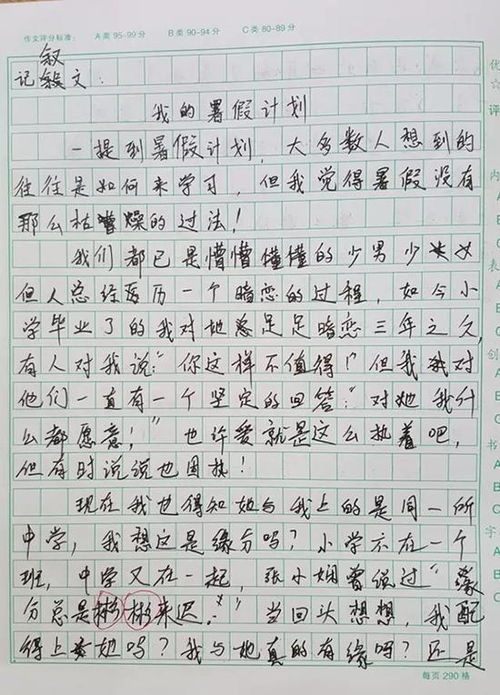 作文评分标准： A类 95-99分 B类 90-94分 C类 80-89分
叙
记文：
我的暑假计划
一提到暑假计划，大多数人想到的
往往是如何来学习，但我觉得暑假没有
那么枯燥的过法！
我们都已是懵懵懂懂的少男少女
但人总经历一个暗恋的过程，如今小
学毕业了的我对她足足暗恋三年之久，
有人对我说："你这样不值得！"但我对
他们一直有一个坚定的回答："对她我什
么都愿意！"也许爱就是这么执着吧，
但有时说说也固执！
现在我也得知她与我上的是同一所
中学，我想这是缘分吗？小学亦在一个
班，中学又在一起，张小娴曾说过"缘
分总是彬彬来迟。"当回头想想，我配
得上她吗？我与她真的有缘吗？还是
每页 290 格
优
☆
评
内
A
B
C
表
A
B
C
创
A
B
C
书
A
B
C
字